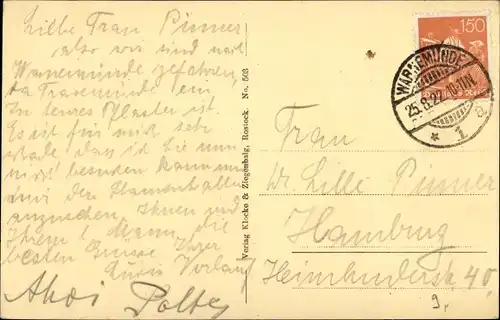 Liebe Frau Pinner
also wir sind nach
Warnemünde gefahren,
da Travemünde ein
zu teures Pflaster ist.
Es ist für mich sehr
schade, dass ich Sie nun
nicht besuchen kann um
mir der
anzusehen Ihnen und
Ihrem l. Mann die
besten Grüsse Ihrer
Ahoi
Verlag Klocke & Ziegenbalg, Rostock. No. 503
150
WARNEMÜNDE
25.8.22. 10-11 N.
* 1
Frau
Lilli Pinner
Hamburg
Heimhuderstr. 40,
9.